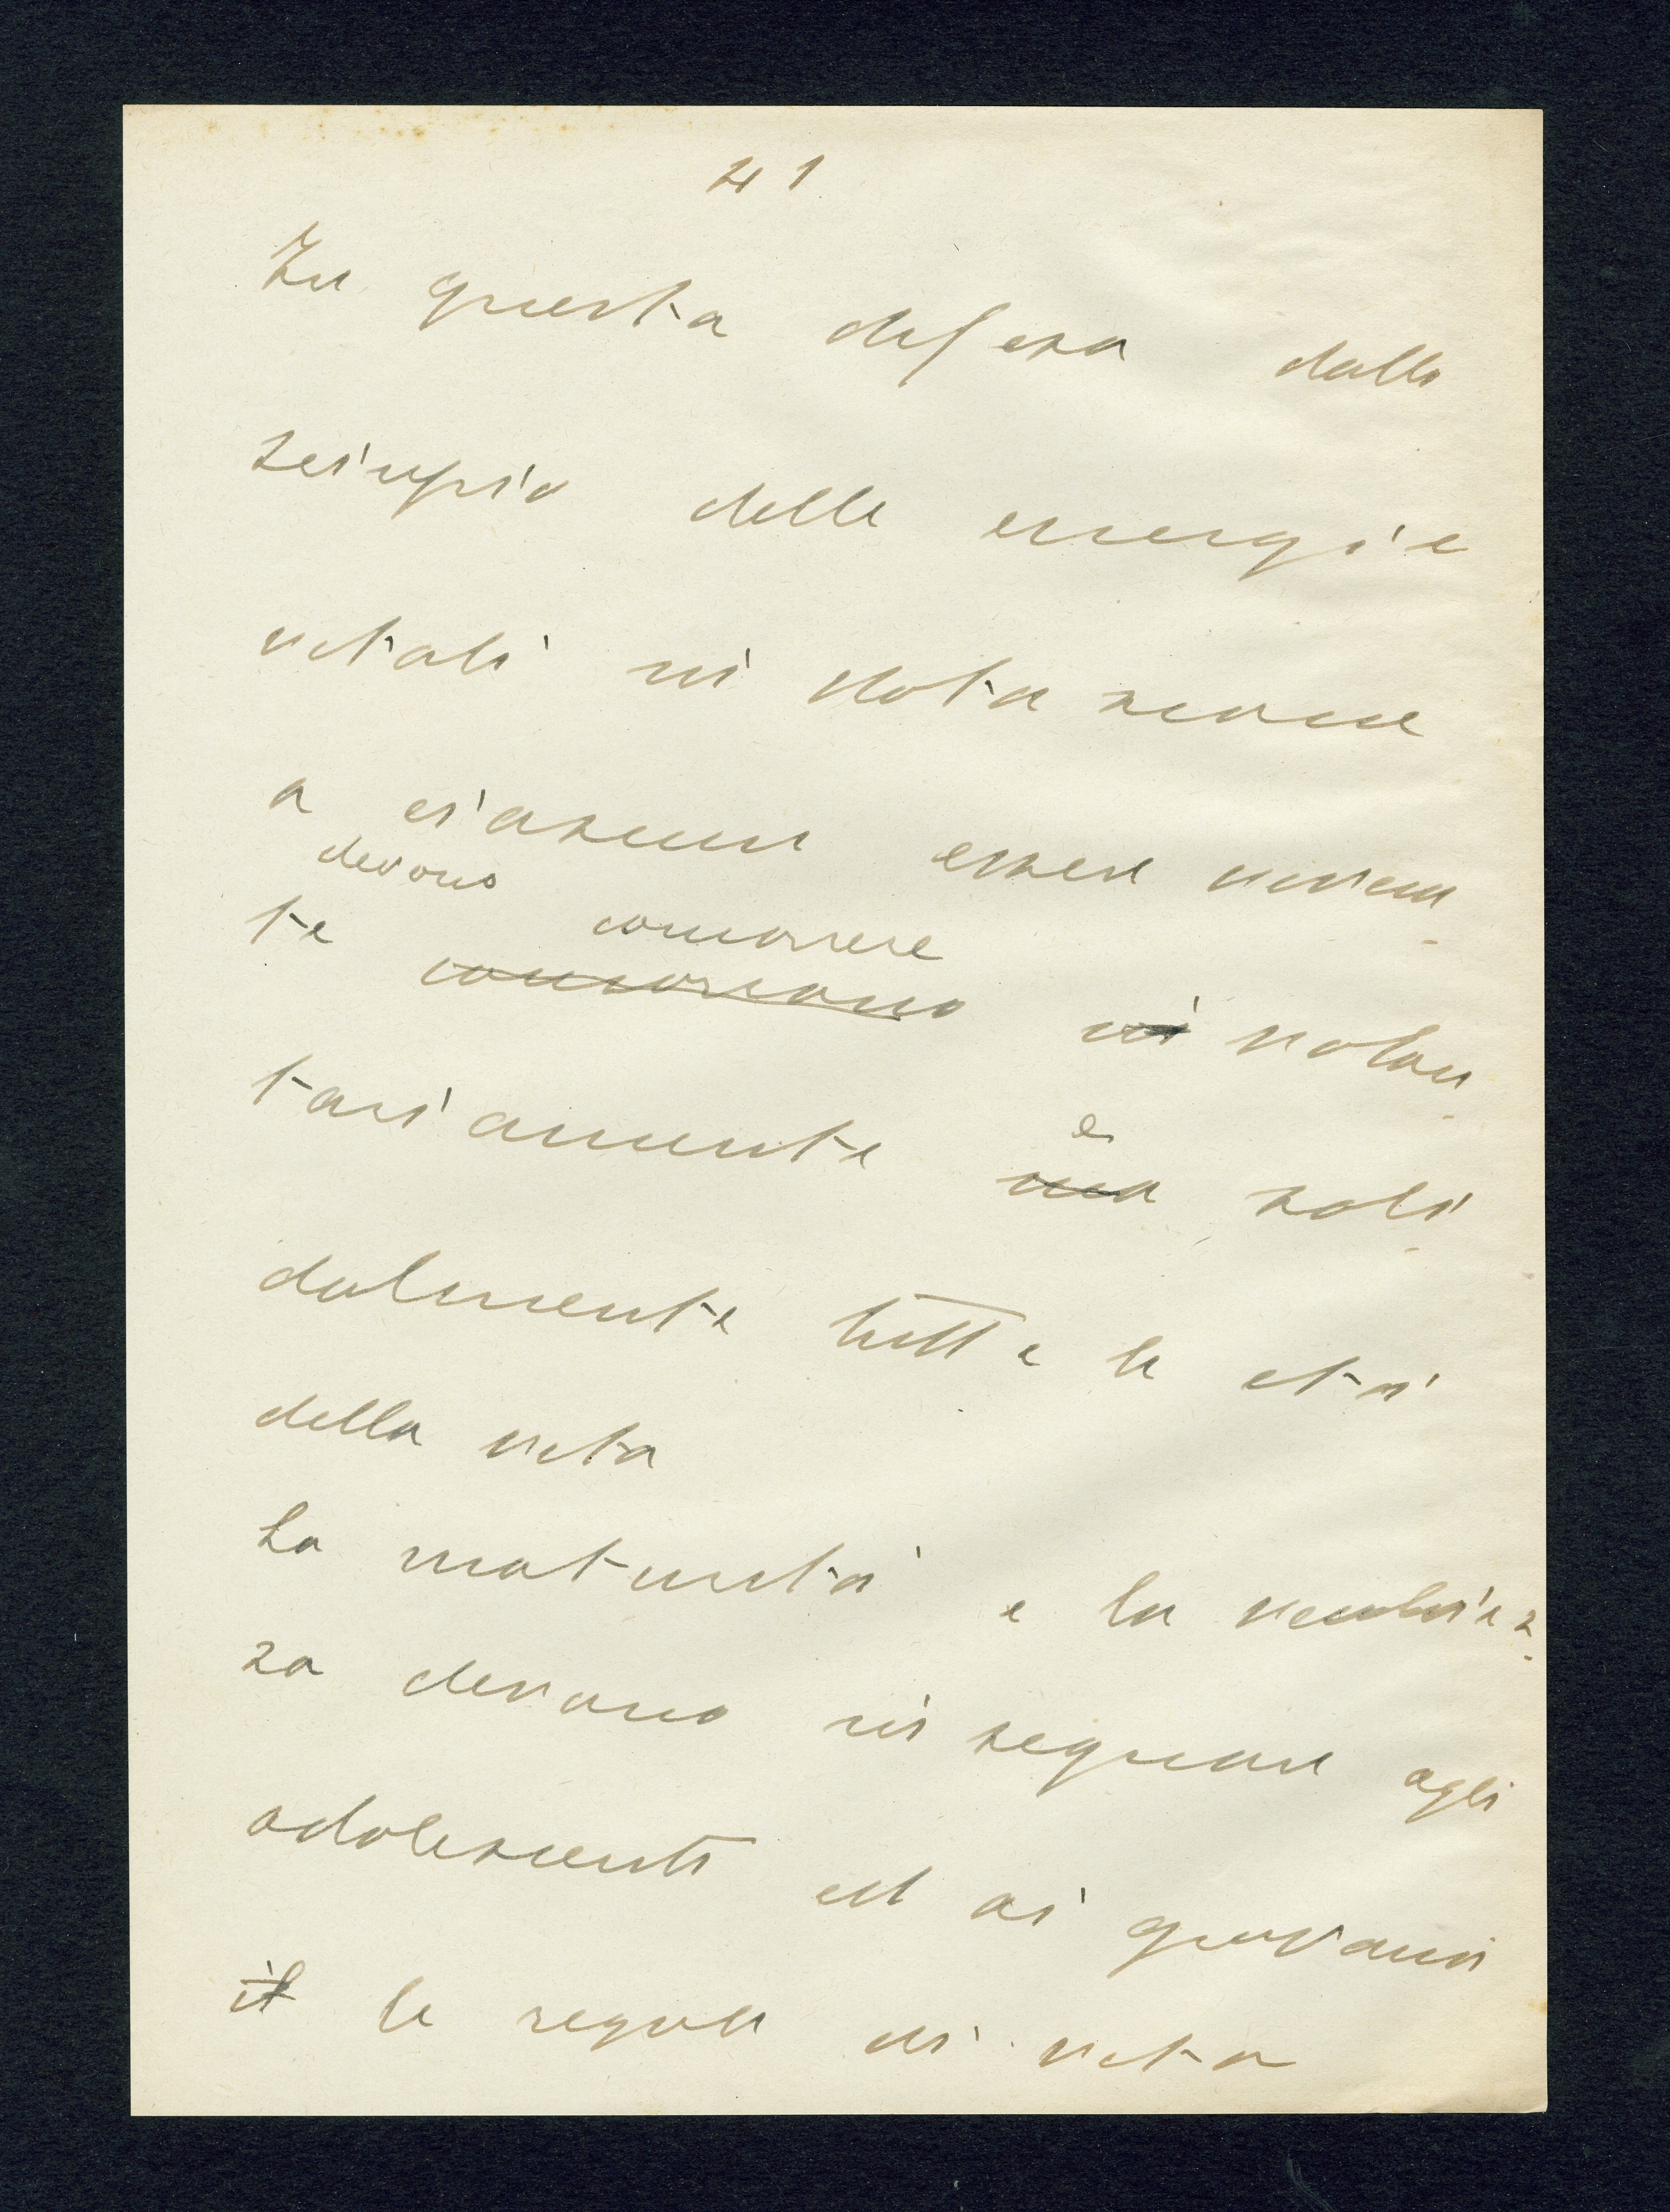 41
In questa difesa dallo
sciupio delle energie
vitali in dotazione
a ciascun essere viven-
devono
te concorrere
concorrono vi volon-
tariamente e
ma soli-
dalmente tutte le età
della vita
La maturità e la vecchiez-
za devono insegnare agli
adolescenti ed ai giovani
il le regole di vita